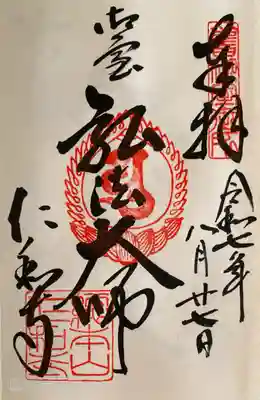 奉拝
令和七年
八月廿七日
御室
弘法大師
仁和寺